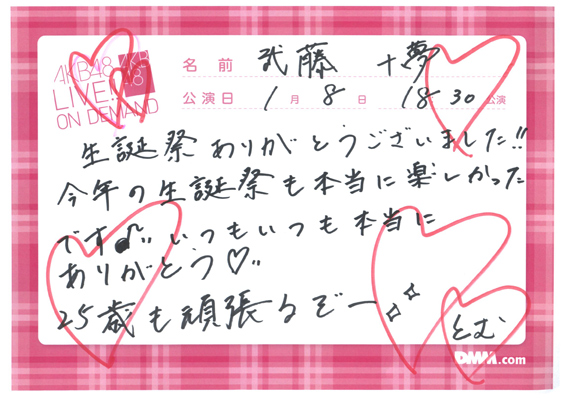 AKB48
LIVE!!
ON DEMAND
AKB
48
名前 武藤 十夢
公演日 1月8日 18 30 公演
生誕祭ありがとうございました!!
今年の生誕祭も本当に楽しかった
です♪いつもいつも本当に
ありがとう♡
25歳も頑張るぞー
とむ
DMM.com